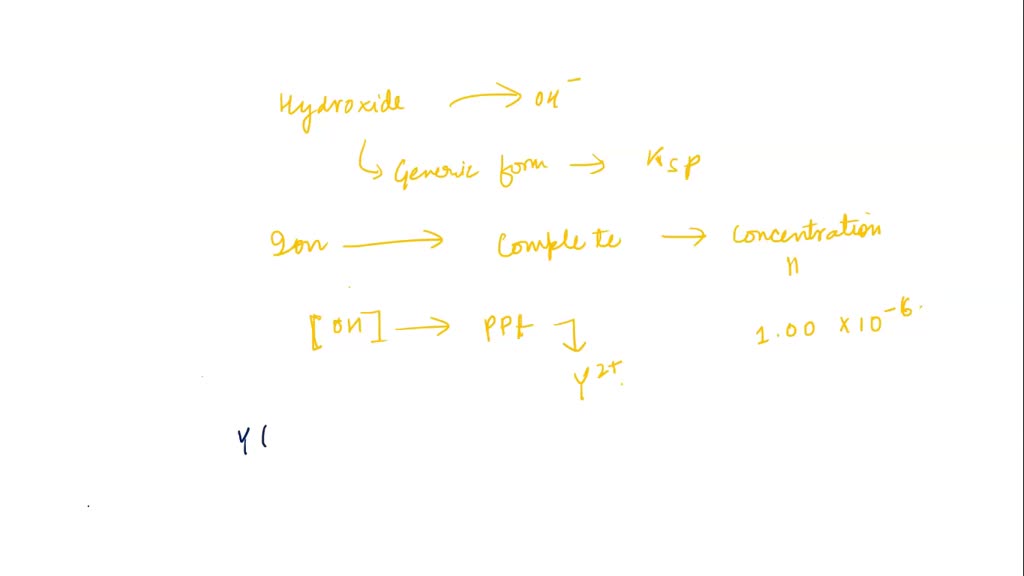 Hydroxide → OH⁻
↳ Generic form → Ksp
Ion → Complete → Concentration
[OH] → PPt
1.00 × 10⁻⁶.
Y²⁺.
Y(